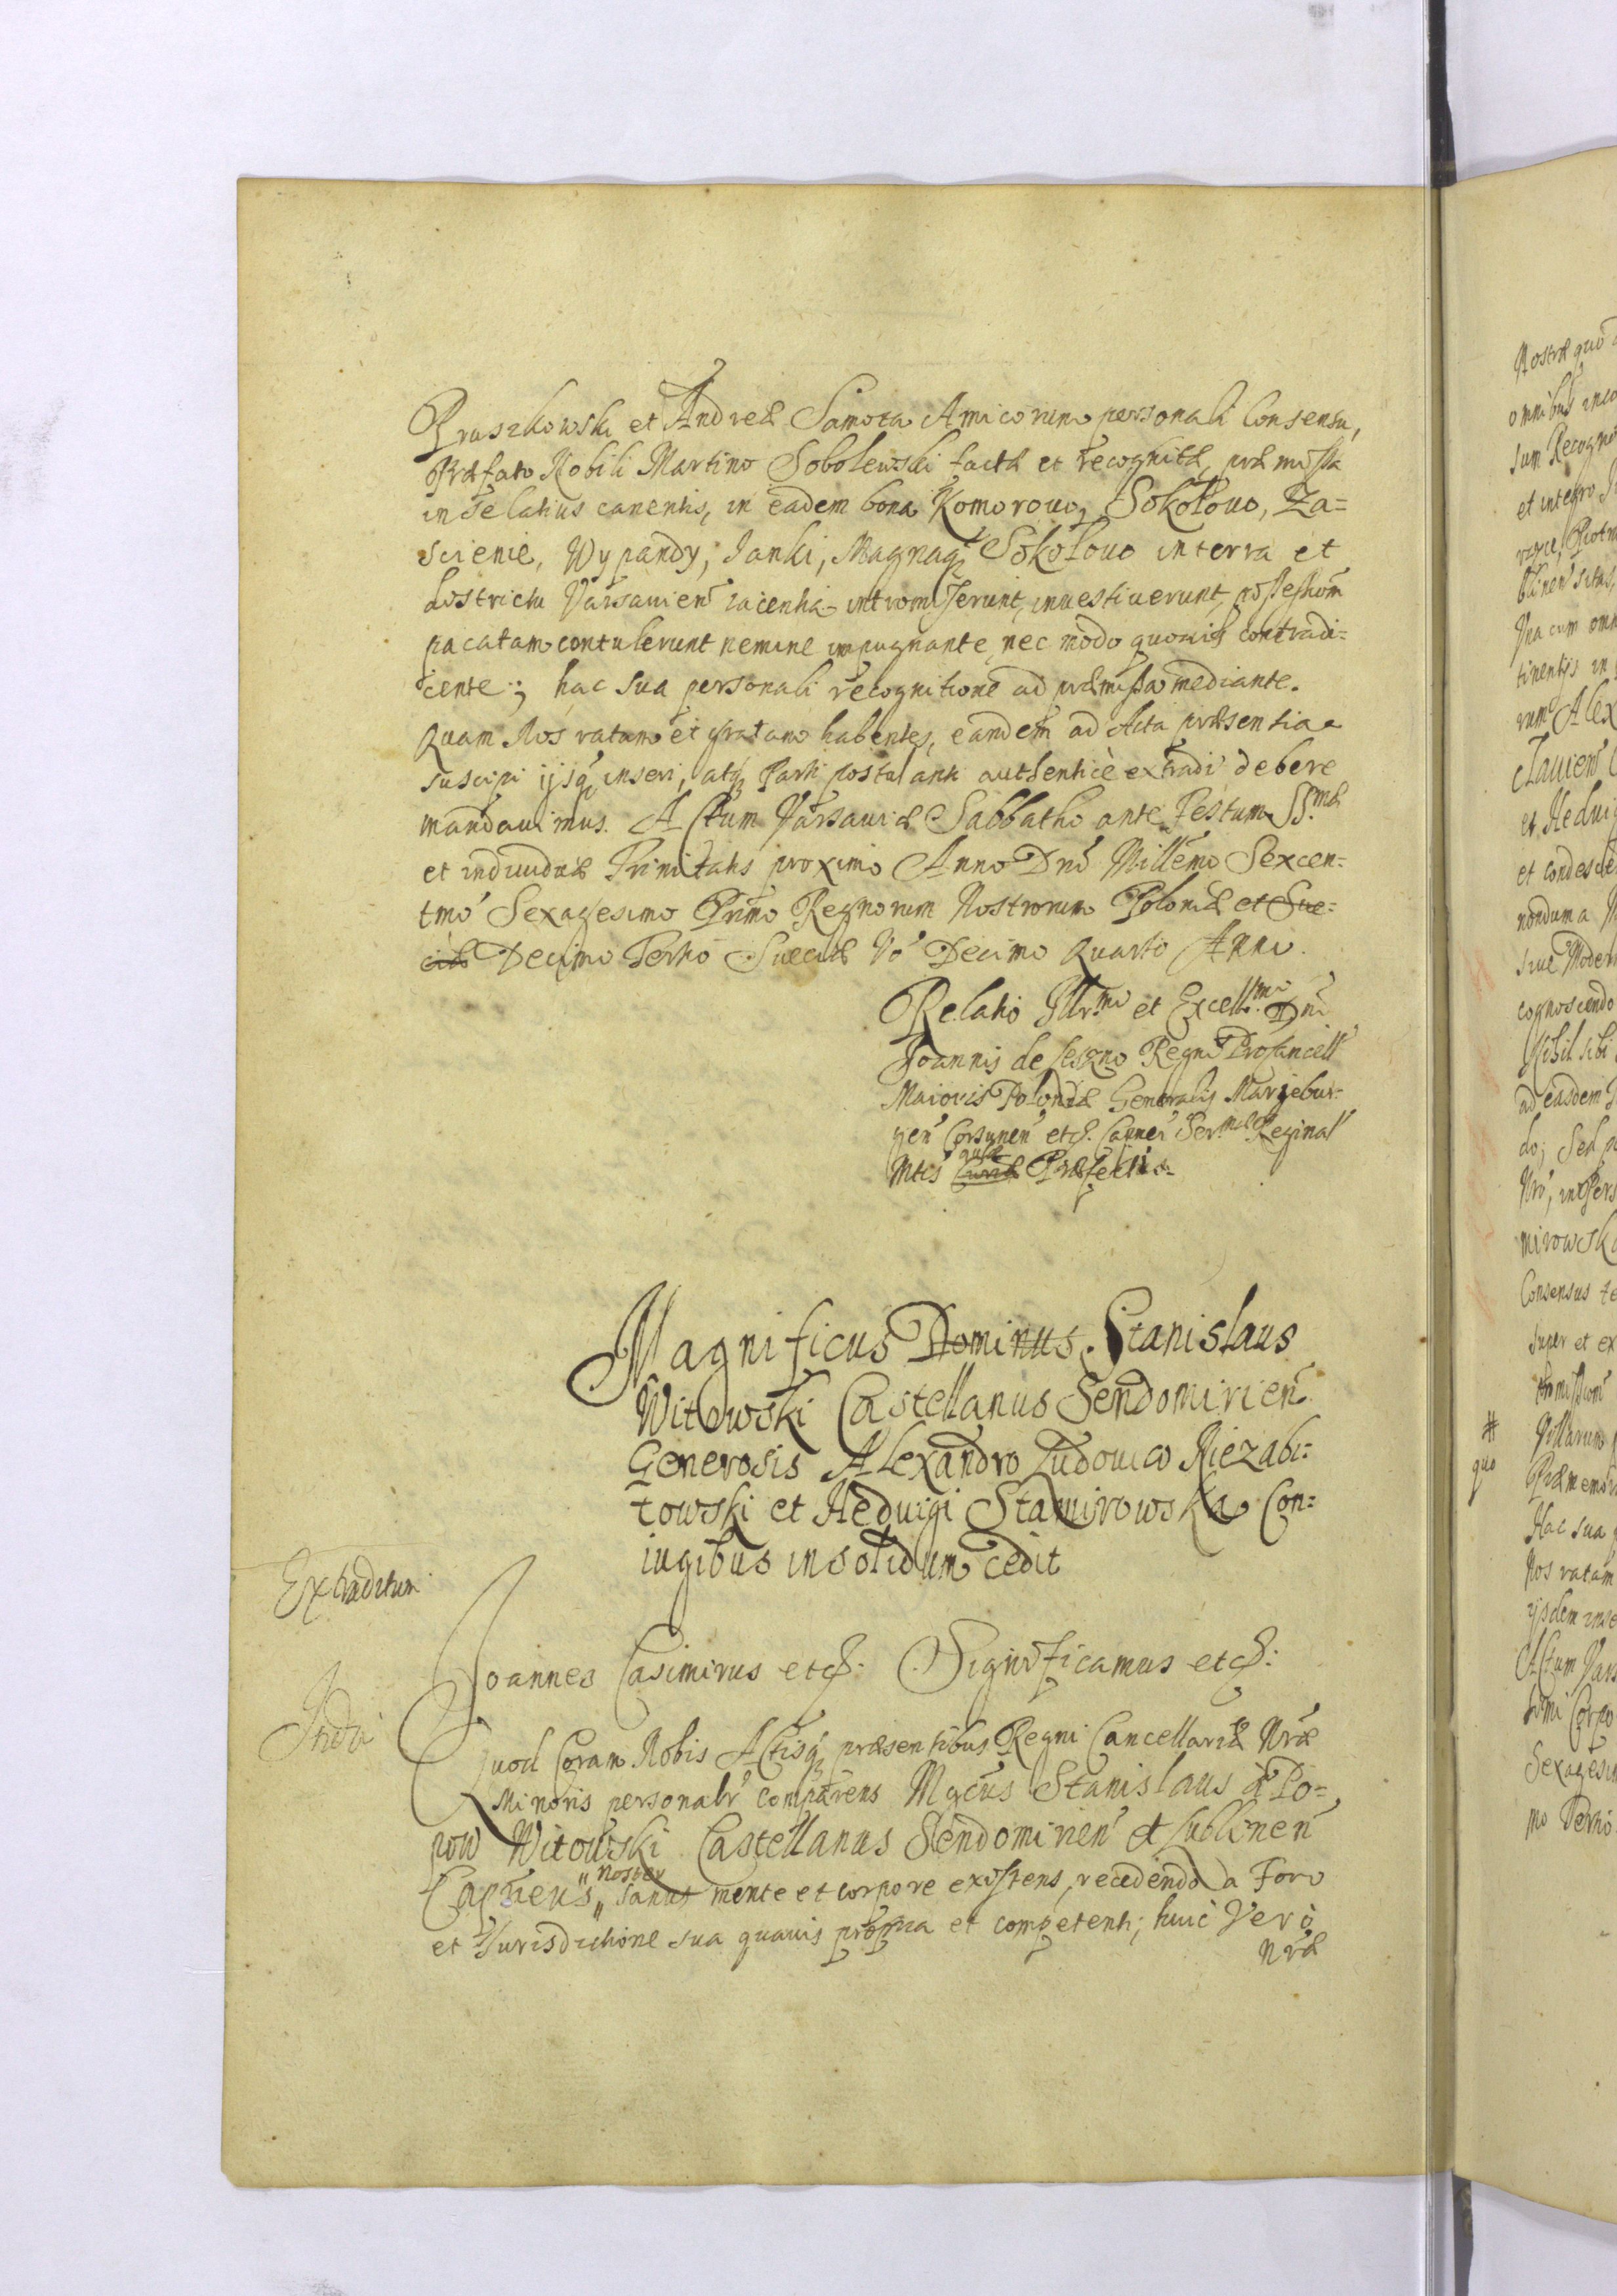 Pruszkowski et Andreæ Samota Amicorum personali Consensu,
Præfato Nobili Martino Sobolewski factæ et recognitæ, præmissa
in se latius canentis, in eadem bona Komorowo, Sokołowo, Za=
scienie, Wypandy, Janki, Magnaq3 Sokołowo in terra et
districtu Varsauien̄ iacentia intromiserunt, inuestiuerunt, possession̄
pacatam contulerunt nemine impugnante, nec modo quouis contradi=
cente; hac sua personali recognitione ad præmissa mediante.
Quam Nos ratam et gratam habentes, eandem ad Acta præsentia
suscipi ijsq3 inseri, atq3 Parti postulanti authenticè extradi debere
mandauimus. Actum Varsauiæ Sabbatho ante Festum SS.mæ
et indiuiduæ Trinitatis proximo Anno Dni Millēmo Sexcen=
tmo Sexagesimo Primo Regnorum Nostrorum Poloniæ et Sue=
ciæ Decimo Tertio Sueciæ Vo Decimo Quarto Anno.
Relatio Illr.mi et Excell.mi Dni
Joannis de Leszno Regni Procancell
Maioris Poloniæ Generalis Mariebur=
gen̄ Corsunen̄ etc. Capnei Ser.mæ Reginal
Mtis Curiæ Præfecti.
Magnificus Dominus Stanislaus
Witowski Castellanus Sendomirien̄
Generosis Alexandro Ludouico Niezabi=
towski et Heduigi Stamirowska Con=
iugibus in solidum cedit
Extraditum
Joannes Casimirus etc. Significamus etc:
Quod Coram Nobis Actisq3 præsentibus Regni Cancellariæ Nræ
Minoris personalr comparens Mgcus Stanislaus à Po=
pow Witowski Castellanus Sendomirien̄ et Lublinen̄
noster
Capneus sanus mente et corpore existens, recedendo a Foro
et Jurisdictione sua quauis propria et competenti; huic Verò
Nræ
Nostræ quo
omnibus
sum Recogni
et integro
Vna cum omn
tinentijs in
rum Alex
et Hedui
et condesce
nondum a
siue Modern
cognoscendo
Nihil sibi
ad easdem
do; Sed
mirowska
Consensus
super et ex
#
Villarum
quo
Præmemora
Hac sua
Nos ratam
ijsdem inse
Actum Vars
simi Corpo
Sexagesi
mo Tertio